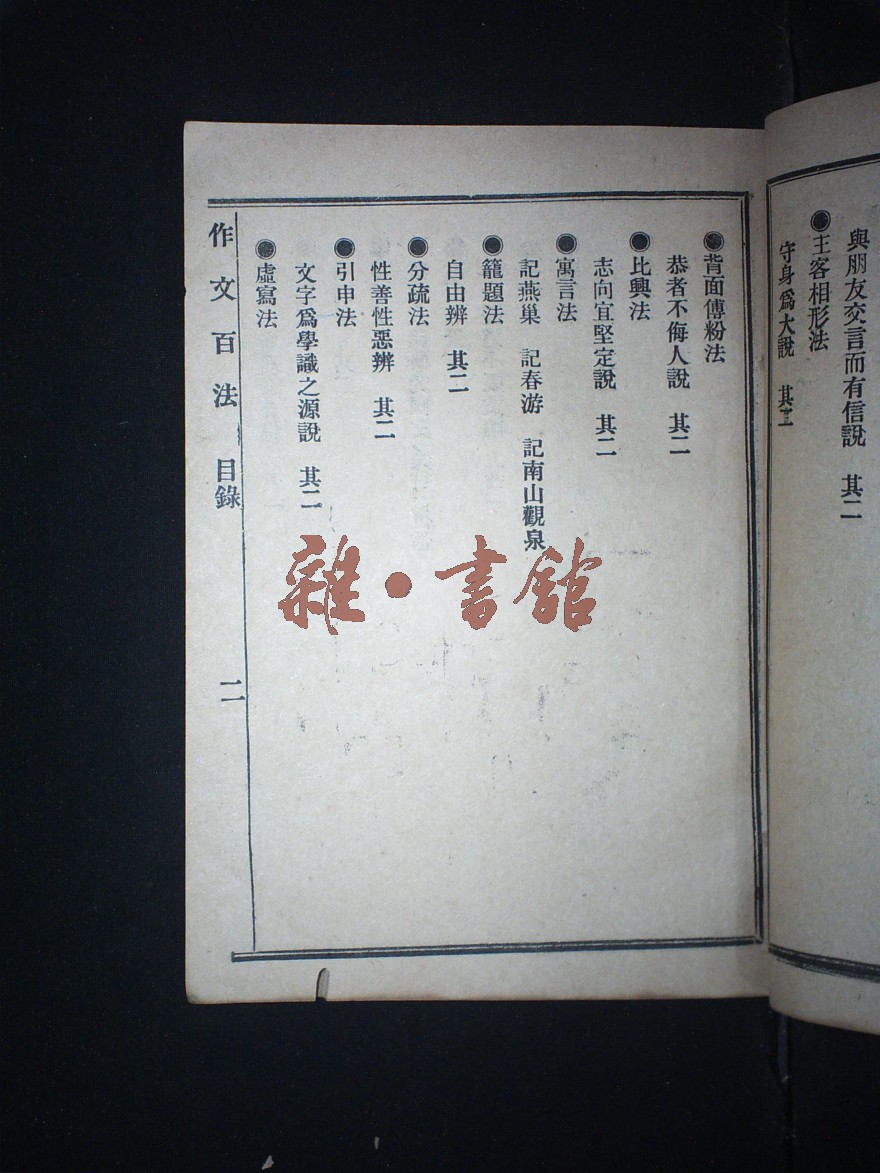 與朋友交言而有信說　其二
●主客相形法
守身爲大說　其二
●背面傅粉法
恭者不侮人說　其二
●比興法
志向宜堅定說　其二
●寓言法
記燕巢　記春游　記南山觀泉
●籠題法
自由辨　其二
●分疏法
性善性惡辨　其二
●引申法
文字爲學識之源說　其二
●虛寫法
作文百法　目錄　二
雜・書館